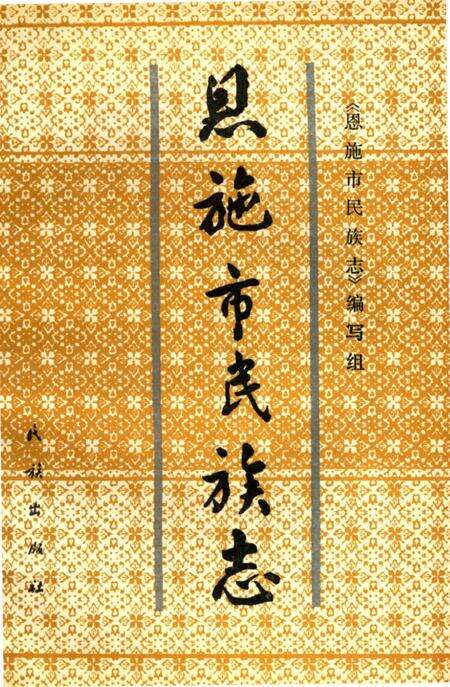 《恩施市民族志》编写组
恩施市民族志
民族出版社